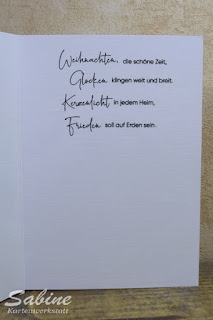 Weihnachten, die schöne Zeit,
Glocken klingen weit und breit.
Kerzenlicht in jedem Heim,
Frieden soll auf Erden sein.
Sabine
Kartenwerkstatt